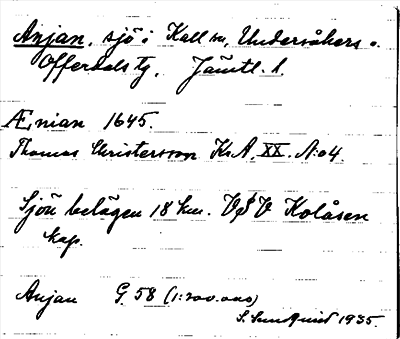 Anjan, sjö i Kall sn, Undersåkers o.
Offerdals tg, Jämtl. l.
Ænian 1645.
Thomas Christersson KrA, XX. N:o4.
Sjön belägen 18 km. VSV Kolåsen
kap.
Anjan G. 58 (1:200.000)
S. Sundquist 1935.